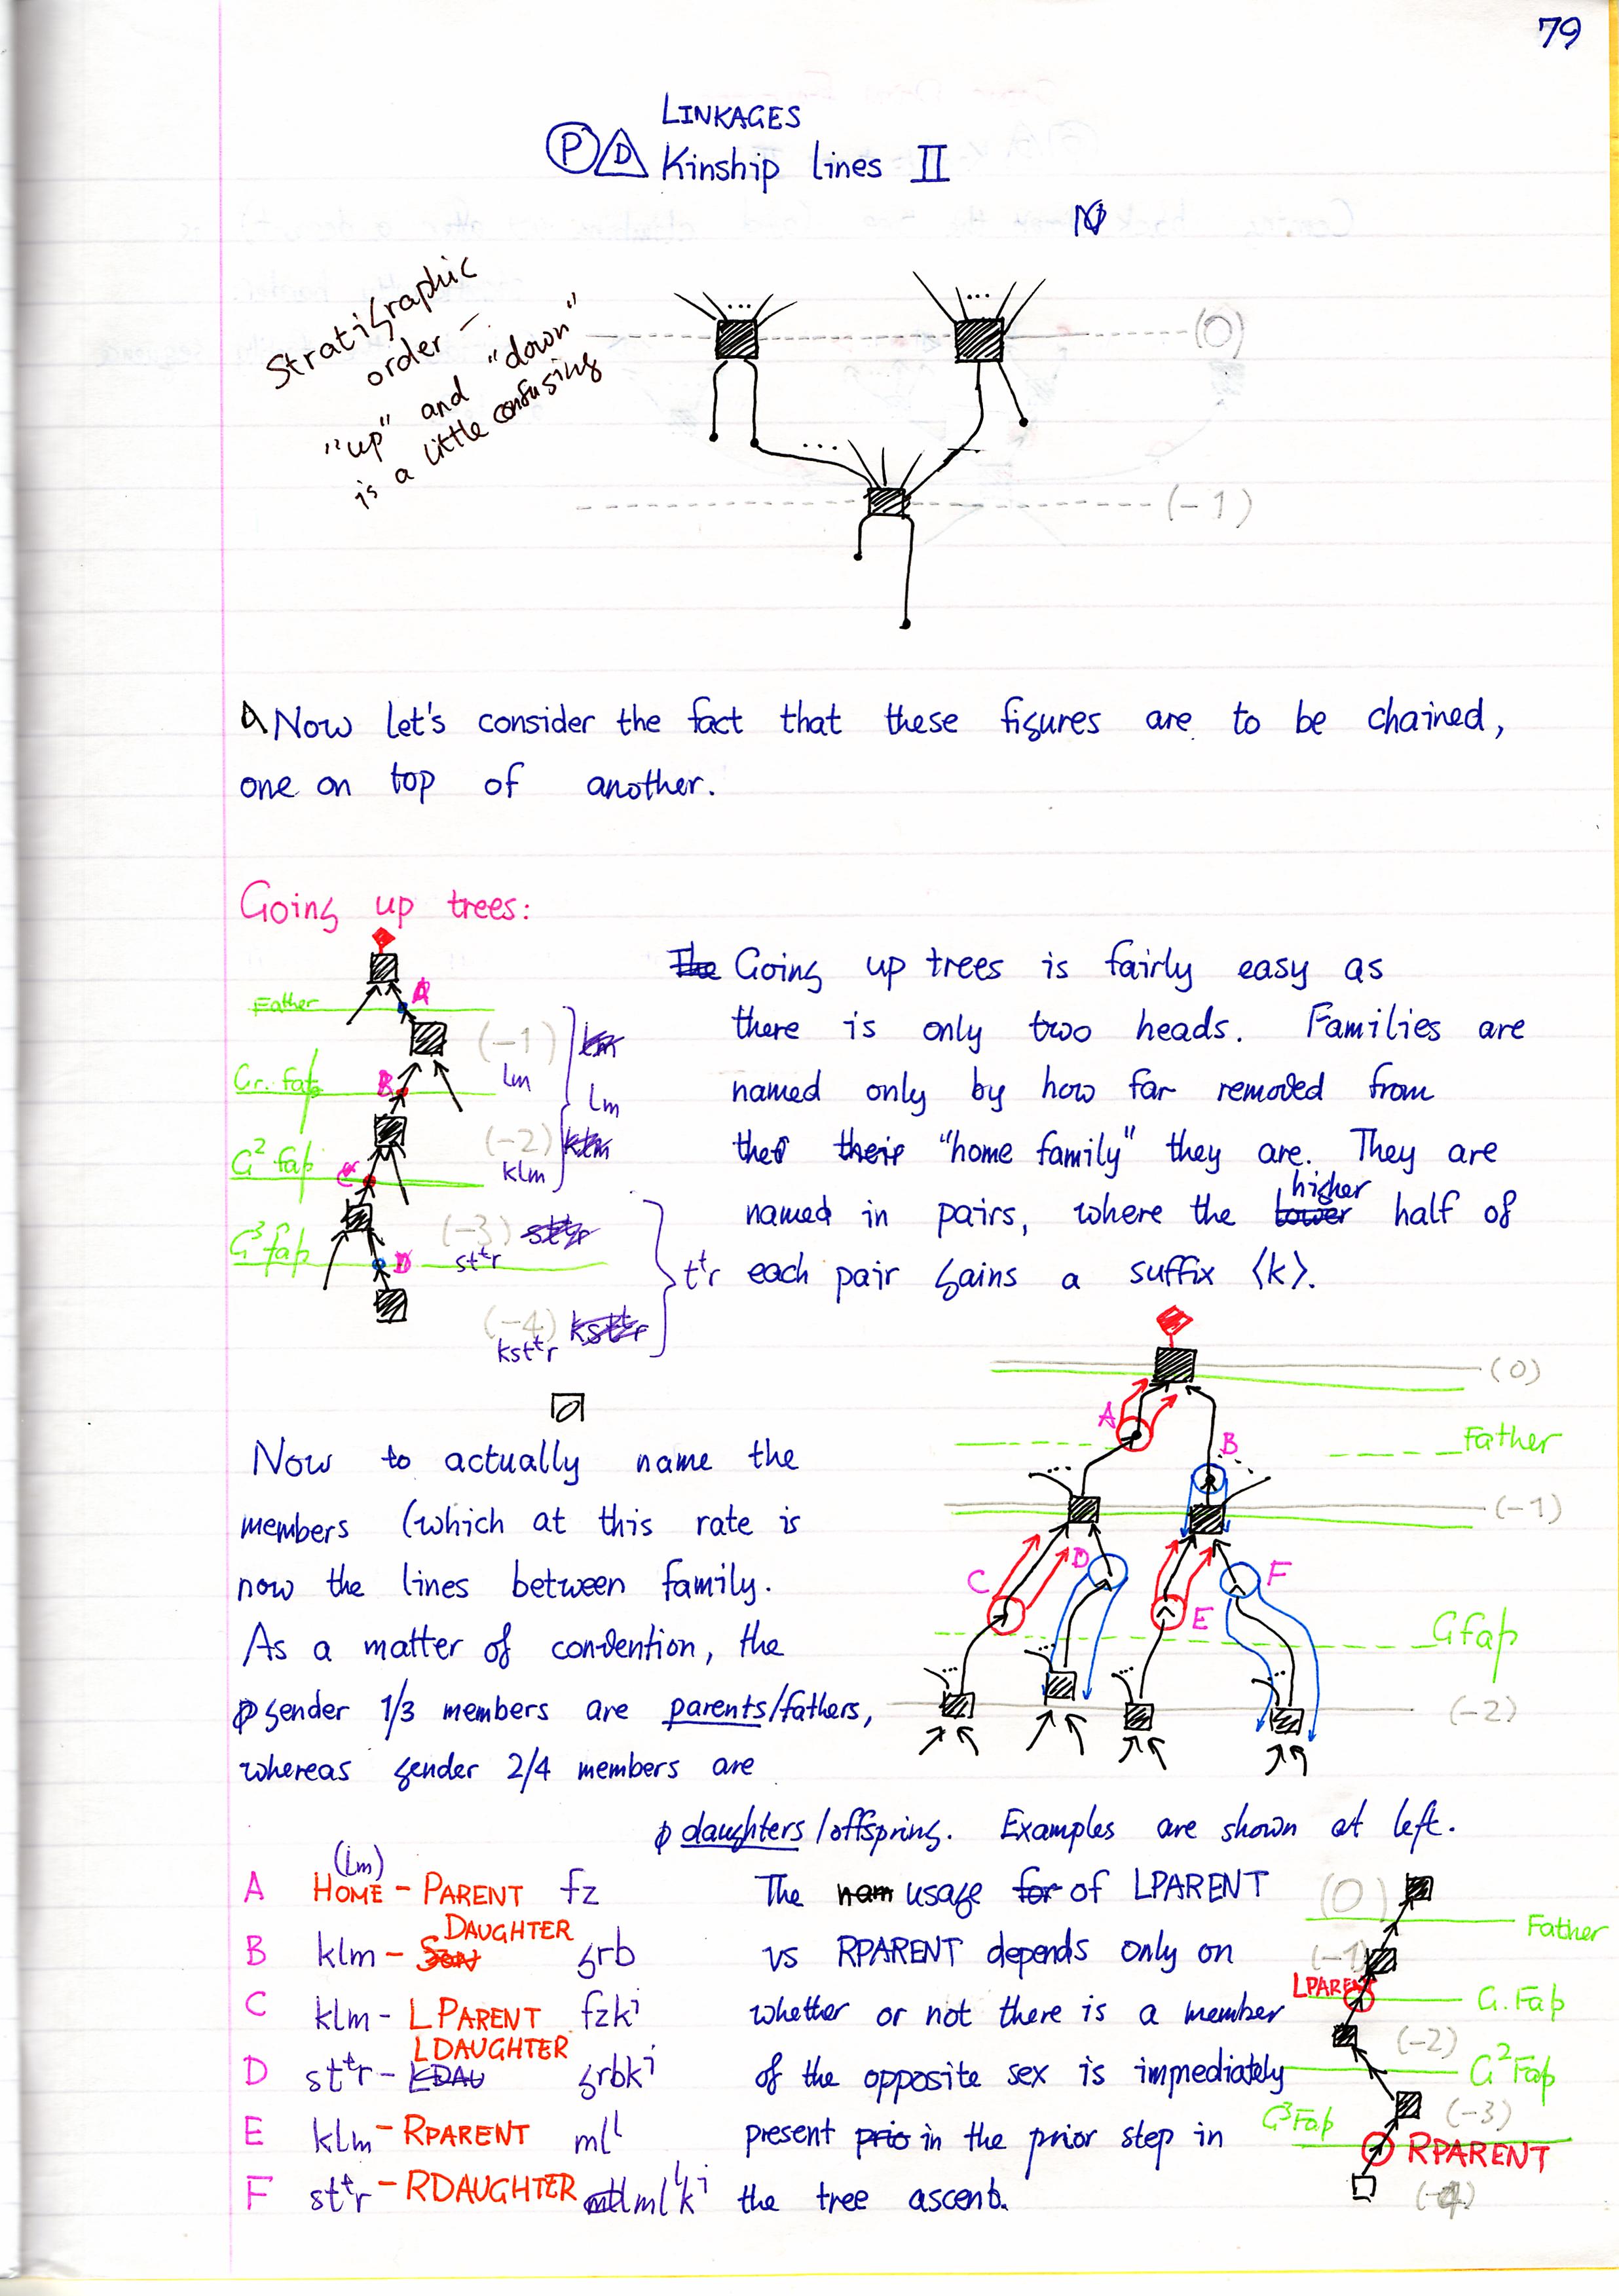 79
LINKAGES
P D Kinship lines II
Stratigraphic
order –
"up" and "down"
is a little confusing
(0)
(-1)
Now let's consider the fact that these figures are to be chained,
one on top of another.
Going up trees:
Father
A
(-1)
lm
lm
Gr. fap
B
G² fap
C
(-2)
klm
G³ fap
D
(-3)
stᵗr
tᵗr
(-4)
kstᵗr
Going up trees is fairly easy as
there is only two heads. Families are
named only by how far removed from
their "home family" they are. They are
named in pairs, where the higher half of
each pair gains a suffix ⟨k⟩.
(0)
A
Father
B
(-1)
C
D
E
F
Gfap
(-2)
Now to actually name the
members (which at this rate is
now the lines between family.
As a matter of convention, the
gender 1/3 members are parents/fathers,
whereas gender 2/4 members are
daughters/offspring. Examples are shown at left.
(lm)
A HOME – PARENT fz
B klm – DAUGHTER grb
C klm – LPARENT fzkⁱ
D stᵗr – LDAUGHTER grbkⁱ
E klm – RPARENT mlˡ
F stᵗr – RDAUGHTER
The usage of LPARENT
vs RPARENT depends only on
whether or not there is a member
of the opposite sex is immediately
present in the prior step in
the tree ascent.
(0)
Father
(-1)
LPARENT
G. Fap
(-2)
G² Fap
(-3)
G³ Fap
RPARENT
(-4)